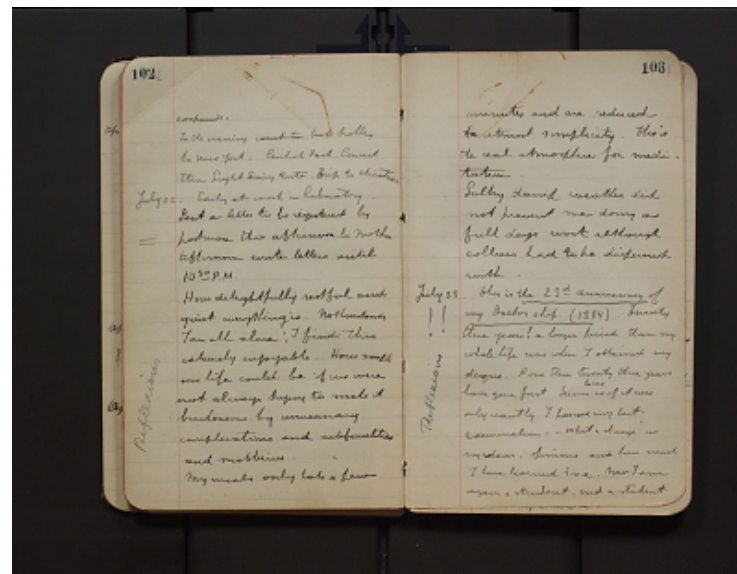 102
compounds.
In the evening went to
to New York. Central Park Concert
then Sight Seeing Auto. Trip to Chinatown
July 22. Early at work in laboratory.
Sent a letter to be registered by
postman this afternoon to Mother
Afternoon wrote letters until
10 30 P.M.
How delightfully restful and
quiet everything is. Notwithstanding
I am all alone, I find this
extremely enjoyable. How simple
our life could be if we were
not always trying to make it
burdensome by unnecessary
complications and artificialities
and snobbism.
My meals only take a few
Reflexions
103
minutes and are reduced
to utmost simplicity. This is
the real atmosphere for medi-
tation.
Sultry damp weather did
not prevent me doing a
full days work although
collars had to be dispensed
with.
July 23. This is the 23rd anniversary of
!! my Doctorship (1884). Twenty
three years! a longer period than my
whole life was when I obtained my
degree. How then twenty three years
have gone fast. Seems as if it were
only recently I passed my last
examination. - What a change in
my ideas, opinions and how much
I have learned since. Now I am
again a student, and a student
Reflexions